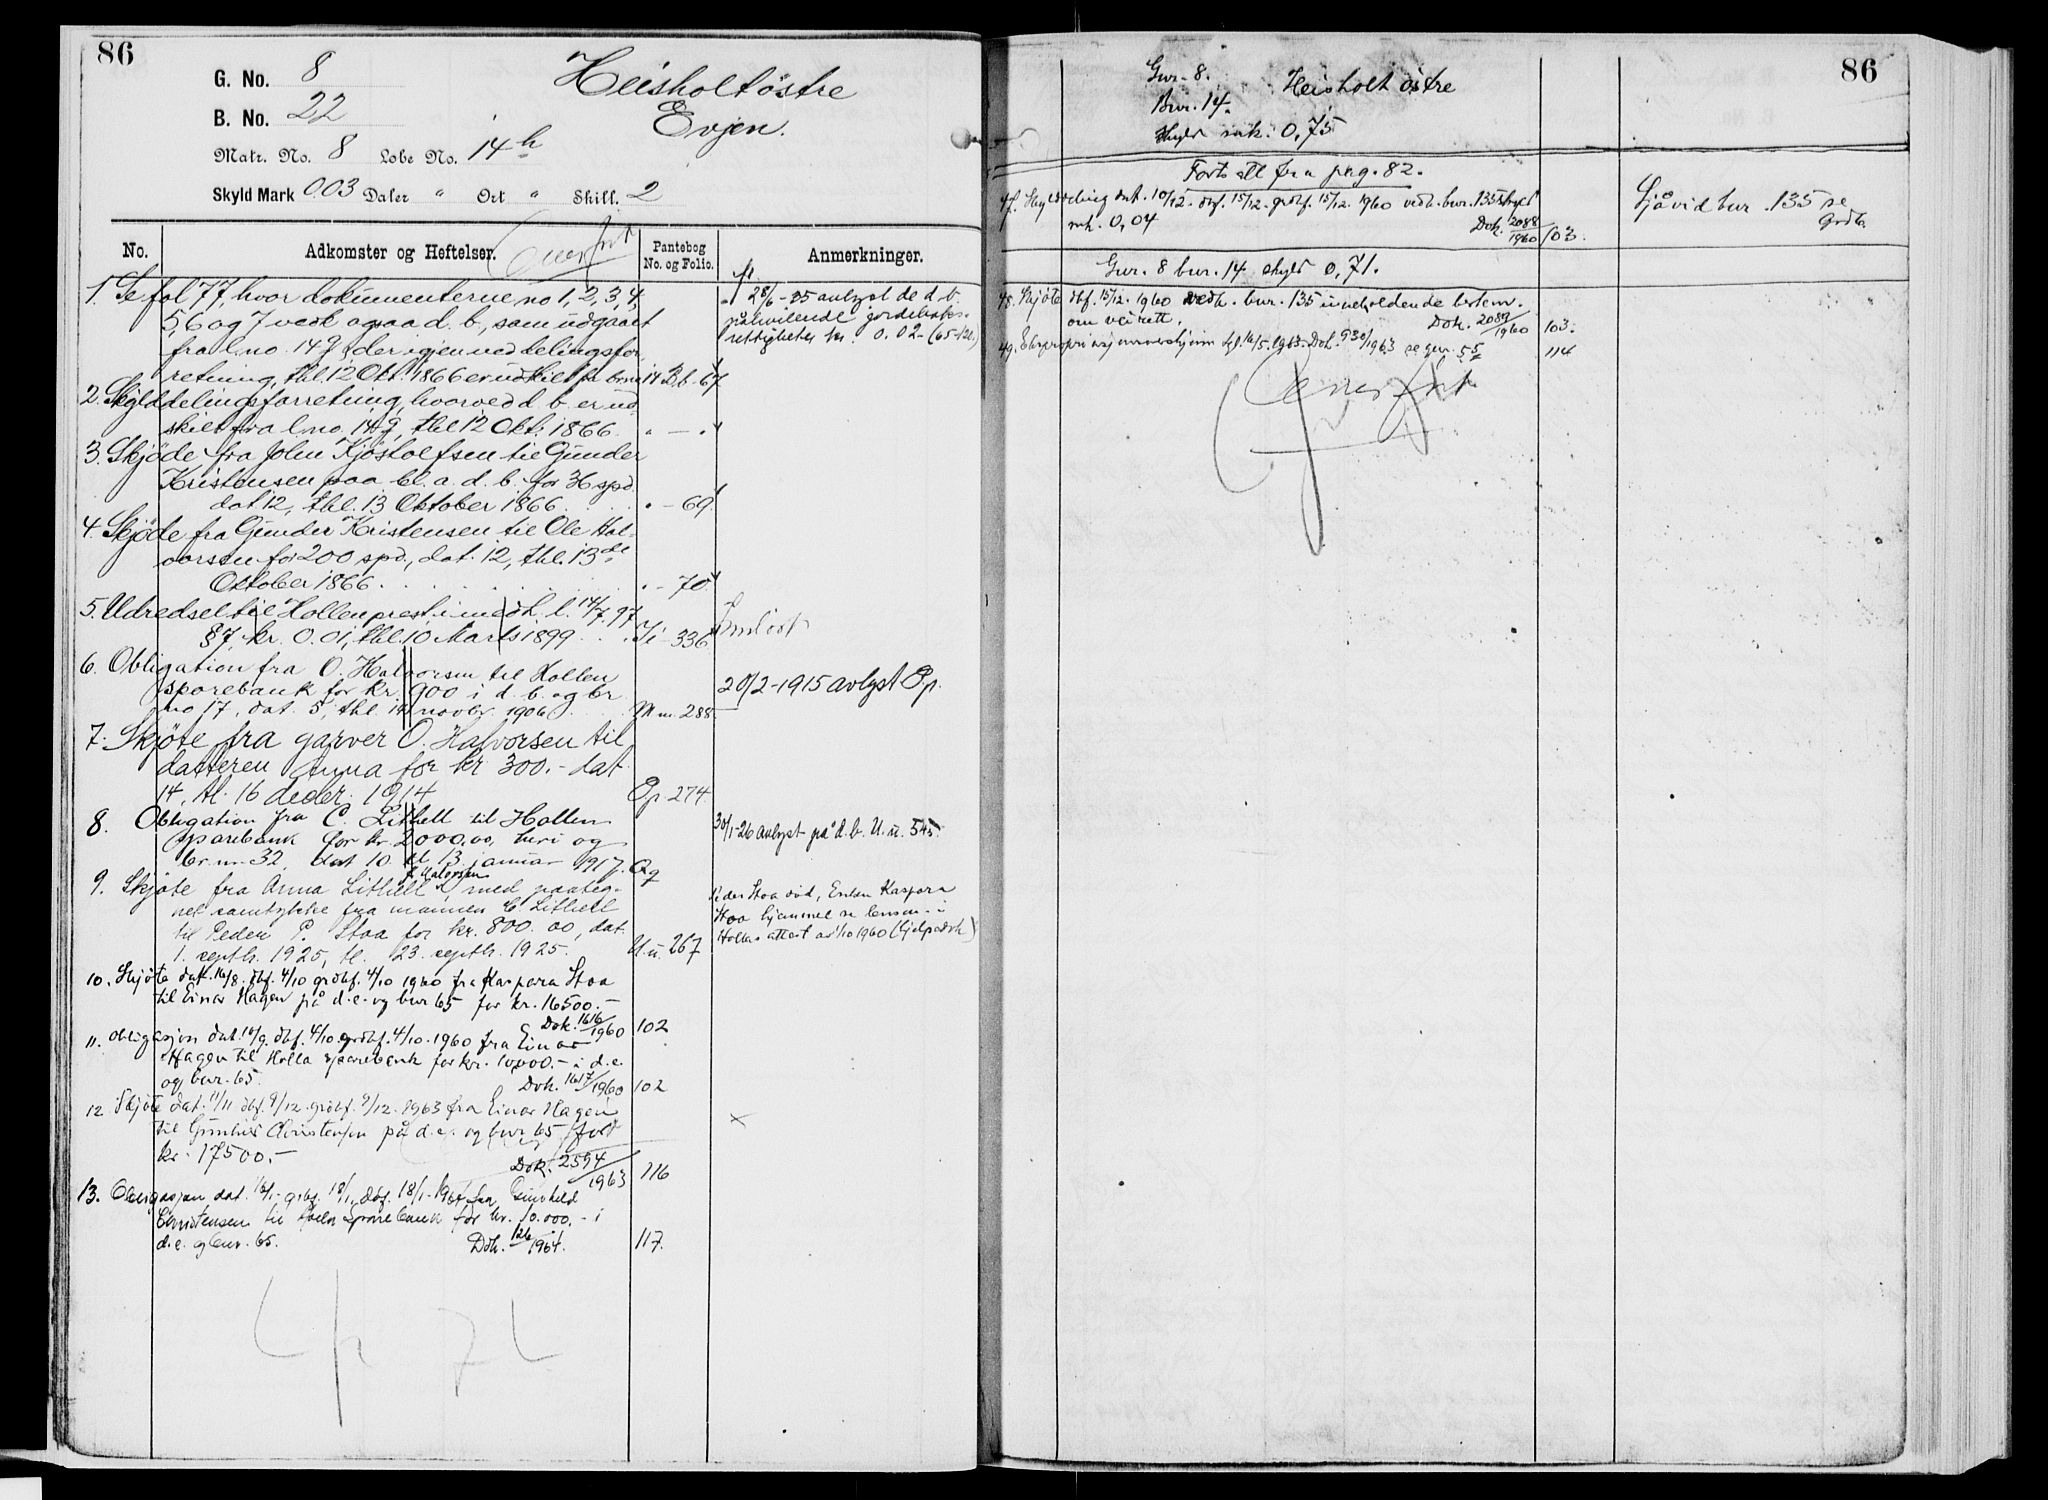 86
G. No. 8
B. No. 22
Matr. No. 8 Løbe No. 14h
Skyld Mark 0.03 Daler " Ort " Skill. 2
Heisholt östre
Evjen.
No. Adkomster og Heftelser. Pantebog No. og Folio. Anmerkninger.
1. Se fol 77, hvor dokumenterne no 1, 2, 3, 4,
5, 6 og 7 vedk ogsaa d. b., som udgaaet
fra l. no. 14g, der igjen ved delingsfor-
retning, thl. 12 Okt. 1866 er udskilt fra brno 14 B.b - 67
28/6-35 avlyst de d. b.
påhvilende jordeboks-
rettigheter kr. 0.02
2. Skylddelingsforretning, hvorved d. b. er ud-
skilt fra l. no. 14g, thl 12 Okt. 1866. " — "
3. Skjöde fra John Kjöstolfsen til Gunder
Kristensen paa bl. a. d. b. for 36 spd.
dat 12, thl. 13 Oktober 1866. " - 69.
4. Skjöde fra Gunder Kristensen til Ole Hal-
vorsen for 200 spd., dat. 12, thl. 13de
Oktober 1866. " - 70.
5. Udredsel til Hollen prest, i medh. l. 14/7. 97
§7, kr. 0.01, thl. 10 Marts 1899. Ii - 336
6. Obligation fra O. Halvorsen til Hollen
sparebank for kr. 900 i d. b. og br.
no 17, dat. 5, thl. 14 novbr. 1906. M m. 288.
20/2-1915 avlyst P.p.
7. Skjöte fra garver O. Halvorsen til
datteren Anna for kr 300.- dat
14, tl. 16 decbr. 1914 Pp 274
8. Obligation fra C. Lithell til Hollen
sparebank for kr. 2000,00, heri og
br. nr. 32, dat 10. tl. 13. januar 1917. Qq
30/1-26 avlyst på d. b. U. u. 545.
9. Skjöte fra Anna Lithell f. Halvorsen, med paateg-
net samtykke fra mannen C. Lithell
til Peder P. Stoa for kr. 800.00, dat.
1. septb. 1925, tl. 23. septb. 1925. U.u. 267
Peder Stoa död, Enken Kaspara
Stoa hjemmel se lensm. i
Hollas attest av 1/10 1960 (hjelpedok)
10. Skjöte dat. 16/8. dbf. 4/10 grdbf. 4/10 1960 fra Kaspara Stoa
til Einar Hagen på d.e. og bnr 65 for kr. 16500.-
Dok. 1616/1960 102
11. Obligasjon dat. 14/9. dbf. 4/10. grdbf. 4/10. 1960 fra Einar
Hagen til Holla sparebank for kr. 10.000.- i d.e.
og bnr. 65. Dok. 1617/1960 102
12. Skjöte dat. 11/11 dbf. 9/12. grdbf. 9/12. 1963 fra Einar Hagen
til Gunhild Christensen på d.e. og bnr 65 for
kr. 17500.-
Dok. 2594/1963 116
13. Obligasjon dat. 16/1. grbf. 18/1, dbf. 18/1-1964 fra Gunhild
Christensen til Holla Sparebank for kr. 10.000.- i
d.e. og bnr. 65. Dok. 126/1964. 117.
86
Gnr. 8. Heisholt östre
Bnr. 14.
Skyld mk. 0,75
Forts att fra pag. 82.
47. Skylddeling dat. 10/12. dbf. 15/12. grdbf. 15/12. 1960 vedk. bnr. 135 skyld
mk. 0,04 Dok. 2088/1960 103.
Gjå vid bnr. 135 se
Grdb.
Gnr. 8 bnr. 14. skyld 0,71.
48. Skjöte dbf. 15/12. 1960 vedk. bnr. 135 inneholdende bestem.
om veirett. Dok. 2089/1960 103.
49. Ekspropriasjons 16/5. 1963. Dok. 930/1963 se gnr. 114